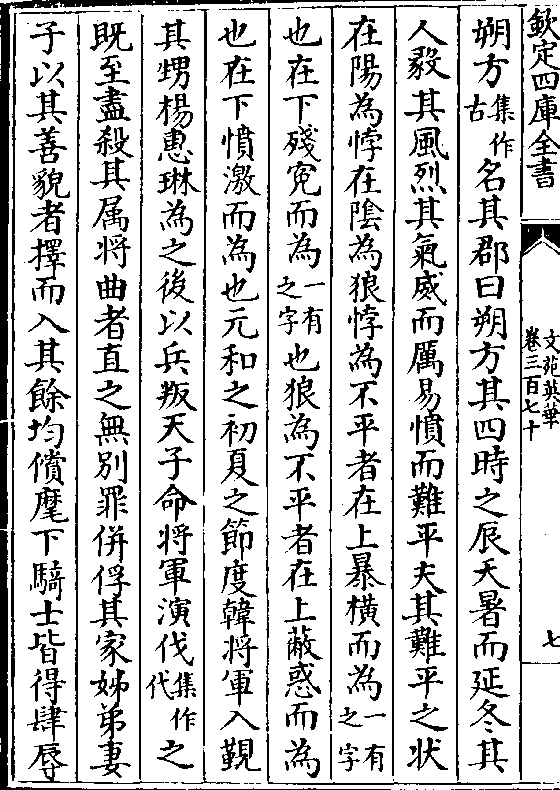 欽定四庫全書
文苑英華
卷三百七十
七
朔方集作古名其郡曰朔方其四時之辰天暑而延冬其
人毅其風烈其氣威而厲易憤而難平夫其難平之狀
在陽為悖在陰為狼悖為不平者在上暴橫而為一有之字
也在下殘寃而為一有之字也狼為不平者在上蔽惑而為
也在下憤激而為也元和之初夏之節度韓將軍入覲
其甥楊惠琳為之後以兵叛天子命將軍演伐集作代之
既至盡殺其属將曲者直之無別罪併俘其家姊弟妻
子以其善貌者擇而入其餘均償麾下騎士皆得肆辱